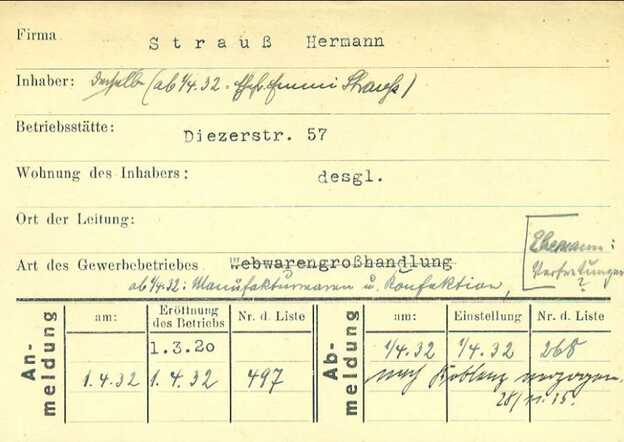 Firma Strauß Hermann
Inhaber: derselbe (ab 1/4.32 - Ehefr. Emmi Strauss)
Betriebsstätte: Diezerstr. 57
Wohnung des Inhabers: desgl.
Ort der Leitung:
Ehemann:
Vertretungen
?
Art des Gewerbebetriebes Webwarengroßhandlung
ab 1/4.32: Manufakturwaren u. Konfektion,
An-meldung
am: Eröffnung des Betriebs Nr. d. Liste
1.3.20
1.4.32 1.4.32 497
Ab-meldung
am: Einstellung Nr. d. Liste
1/4.32 1/4.32 268
nach Koblenz verzogen.
28/11.35.